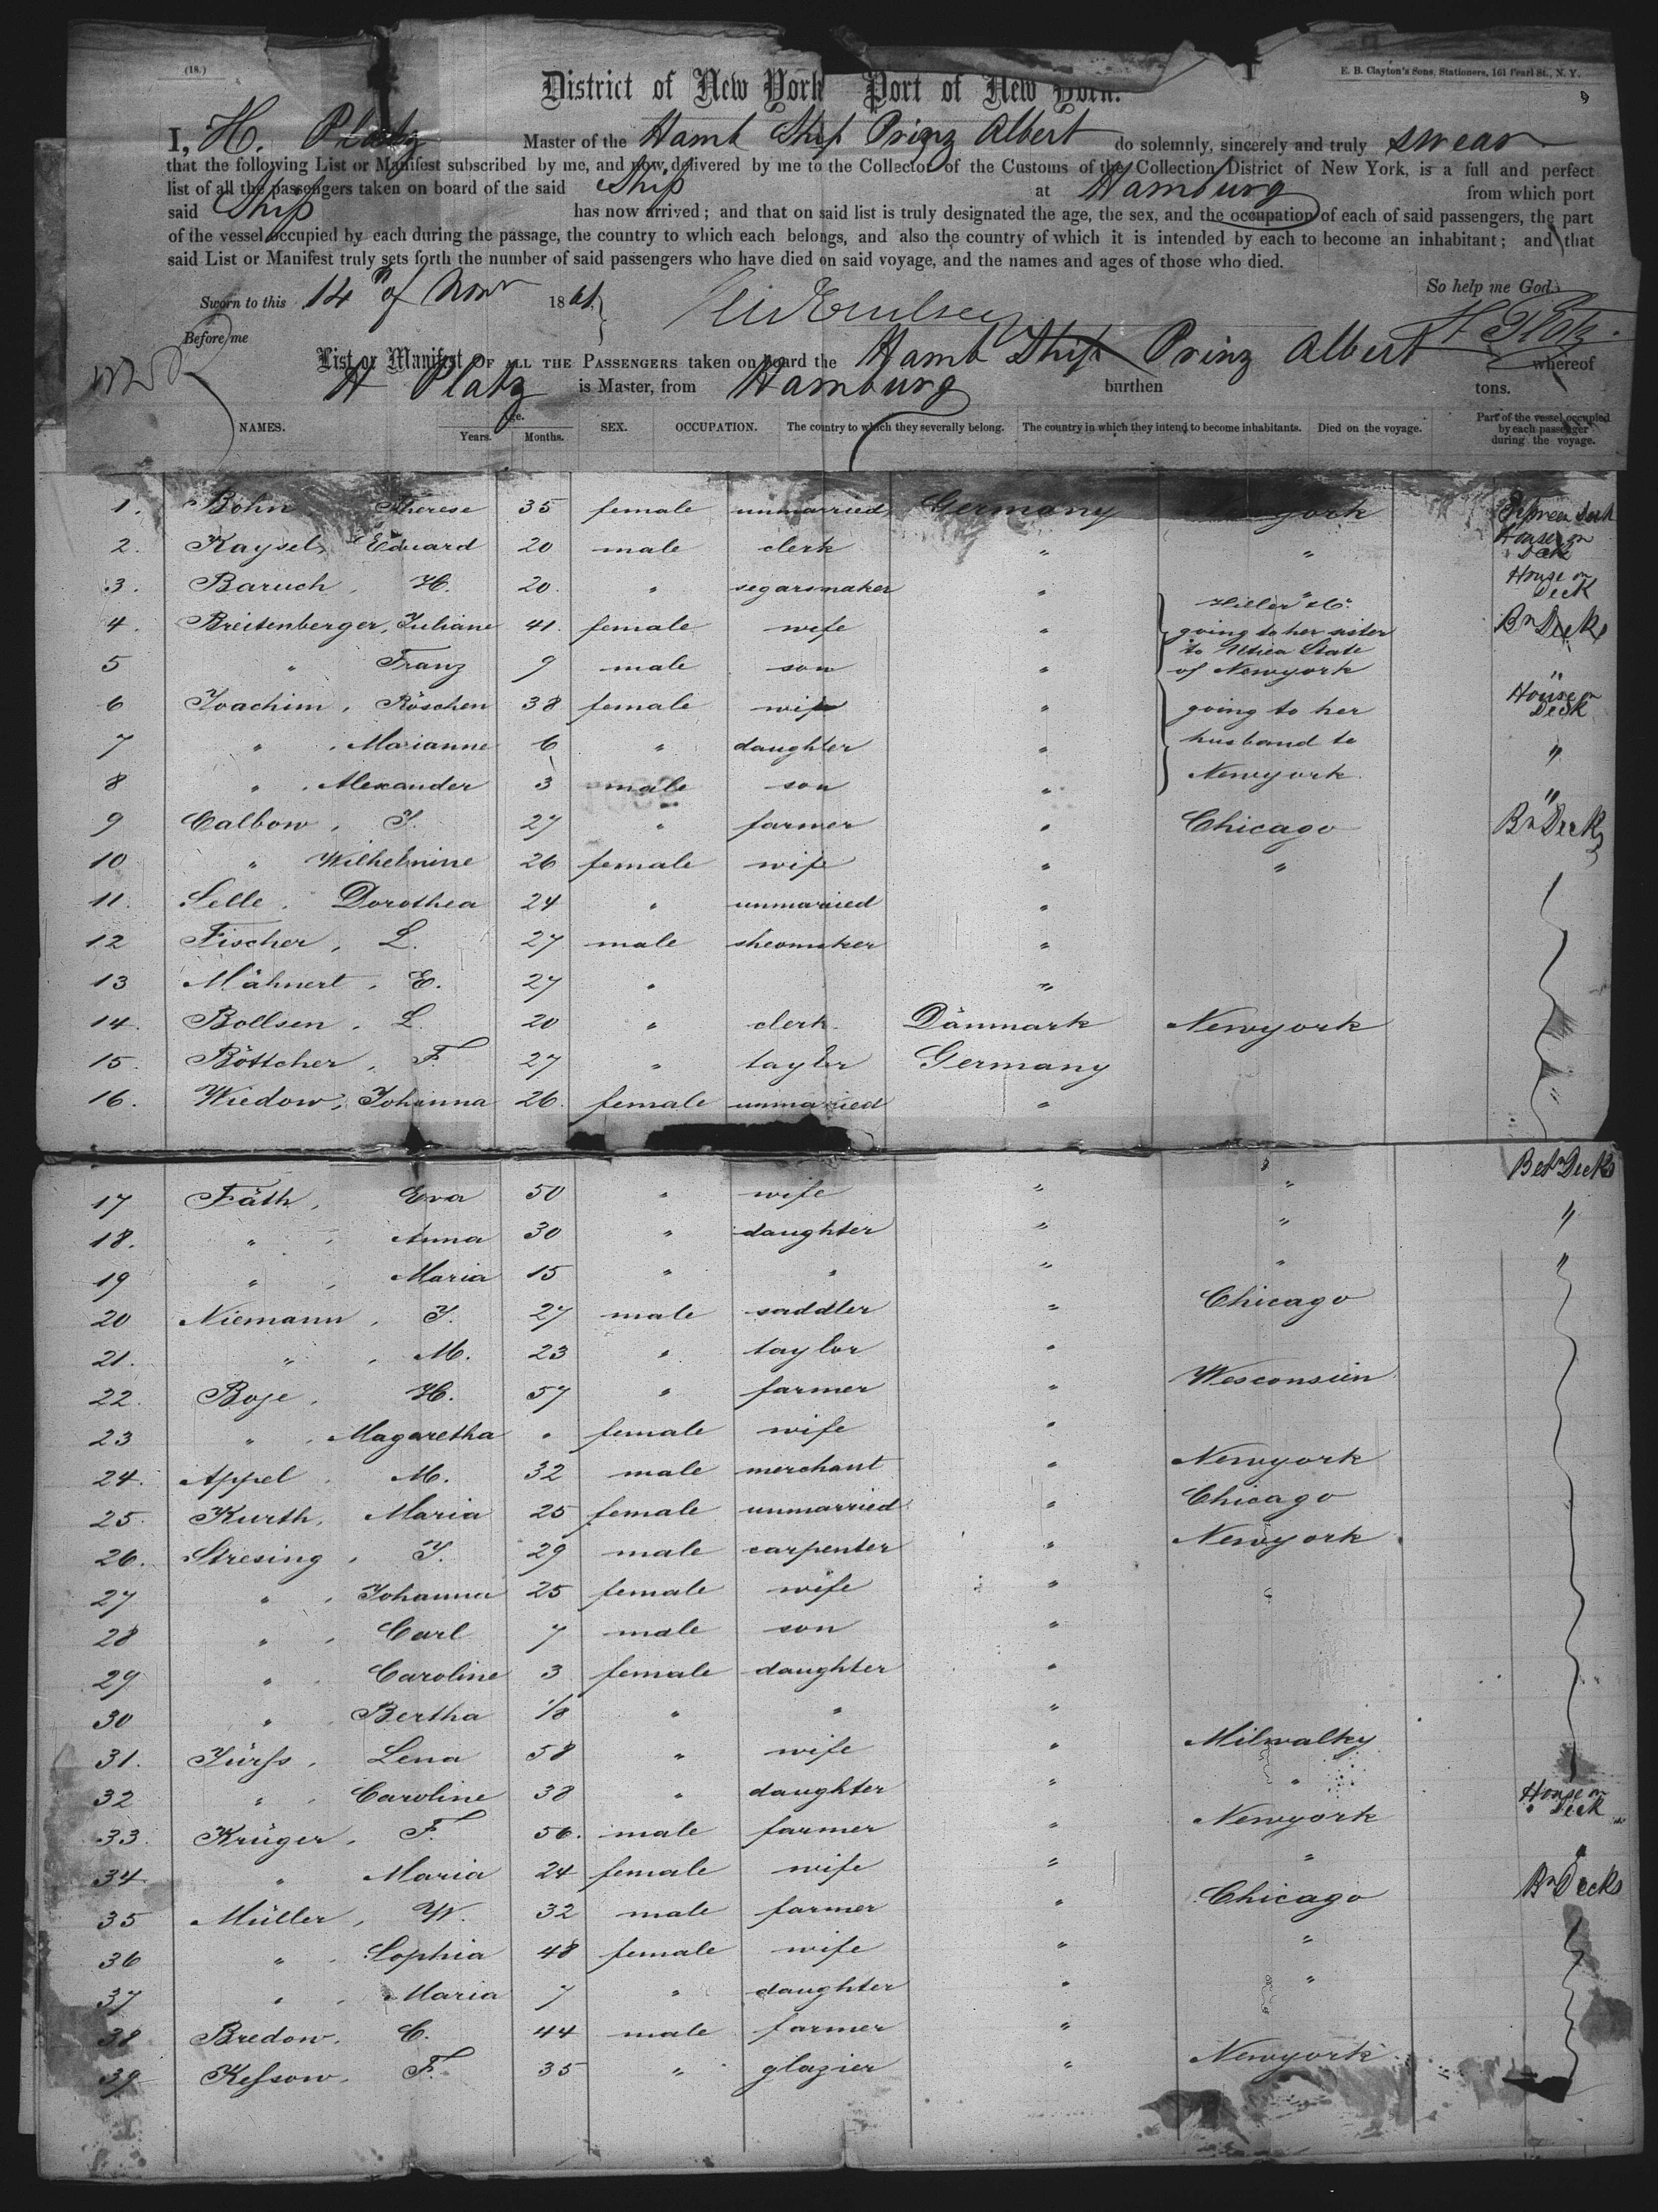 (18.)
E. B. Clayton's Sons, Stationers, 161 Pearl St., N. Y.
District of New York Port of New York.
I, H. Platz Master of the Hamb Ship Prinz Albert do solemnly, sincerely and truly swear
that the following List or Manifest subscribed by me, and now delivered by me to the Collector of the Customs of the Collection District of New York, is a full and perfect
list of all the passengers taken on board of the said Ship at Hamburg from which port
said Ship has now arrived; and that on said list is truly designated the age, the sex, and the occupation of each of said passengers, the part
of the vessel occupied by each during the passage, the country to which each belongs, and also the country of which it is intended by each to become an inhabitant; and that
said List or Manifest truly sets forth the number of said passengers who have died on said voyage, and the names and ages of those who died.
So help me God.
Sworn to this 14th of Novr 1861
H Platz.
Before me
List or Manifest OF ALL THE PASSENGERS taken on board the Hamb Ship Prinz Albert whereof
H Platz is Master, from Hamburg burthen tons.
NAMES. Age. Years. Months. SEX. OCCUPATION. The country to which they severally belong. The country in which they intend to become inhabitants. Died on the voyage. Part of the vessel occupied by each passenger during the voyage.
1. Bohn Therese 35 female unmarried Germany York Between Deck
2. Kaysel, Eduard 20 male clerk " " House on Deck
3. Baruch, H. 20 " segarsmaker " " House on Deck
4. Breitenberger, Juliane 41. female wife " going to her sister Bn Decks
to Utica State
5 " Franz 9 male son " of Newyork "
6 Joachim, Röschen 38 female wife " going to her House on Deck
7 " , Marianne 6 " daughter " husband to "
8 " , Alexander 3 male son " Newyork "
9 Calbow, J. 27 " farmer " Chicago Bn Decks
10 " Wilhelmine 26 female wife " "
11. Selle, Dorothea 24 " unmarried "
12 Fischer, L. 27 male sheomaker "
13 Mähnert, E. 27 " "
14. Bollsen, L. 20 " clerk. Dänmark Newyork
15. Böttcher, F. 27 " taylor Germany
16. Wiedow, Johanna 26. female unmarried " "
17 Fäth, Eva 50 " wife " " Betn Decks
18. " , Anna 30 " daughter " " "
19 " , Maria 15 " " " " "
20 Niemann, J. 27 male saddler " Chicago
21. " , M. 23 " taylor "
22. Boje, H. 57 " farmer " Wesconsien
23 " , Magaretha " female wife "
24. Appel, M. 32 male merchant " Newyork
25. Kurth, Maria 25 female unmarried " Chicago
26. Stresing, J. 29 male carpenter " Newyork
27 " , Johanna 25 female wife "
28 " , Carl 7 male son "
29 " , Caroline 3 female daughter "
30 " , Bertha 1/8 " " "
31. Jürſs, Lena 58 " wife " Milwalky
32 " , Caroline 38 " daughter " " House on Deck
33. Krüger, F. 56. male farmer " Newyork
34 " Maria 24 female wife " " "
35 Müller, W. 32 male farmer " Chicago Bn Decks
36 " , Sophia 48 female wife " "
37 " , Maria 7 " daughter " "
38 Bredow, C. 44 male farmer "
39 Keſsow, F. 35 " glazier " Newyork